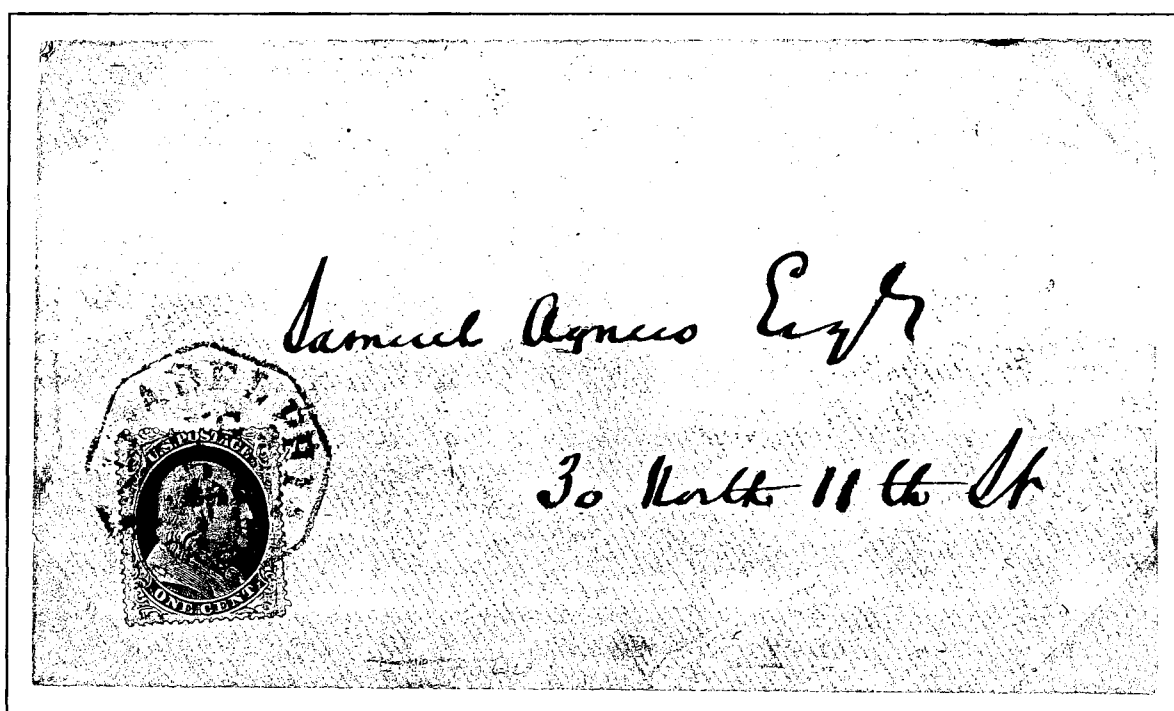 Samuel Agnew Esqr
30 North 11th St
U.S. POSTAGE
ONE CENT